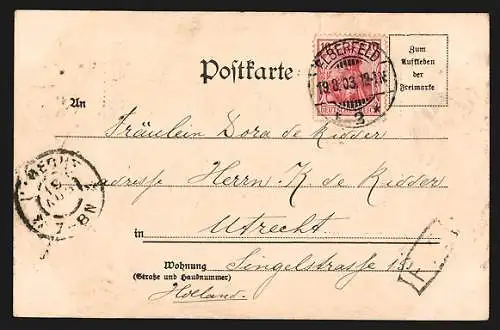 Postkarte
ELBERFELD
19.8.03.
3
Zum
Aufkleben
der
Freimarke
An
Fräulein Dora de Ridder
adresse Herrn K. de Ridder
in Utrecht
Wohnung Singelstrasse
(Straße und Hausnummer)
Holland.
7-8N